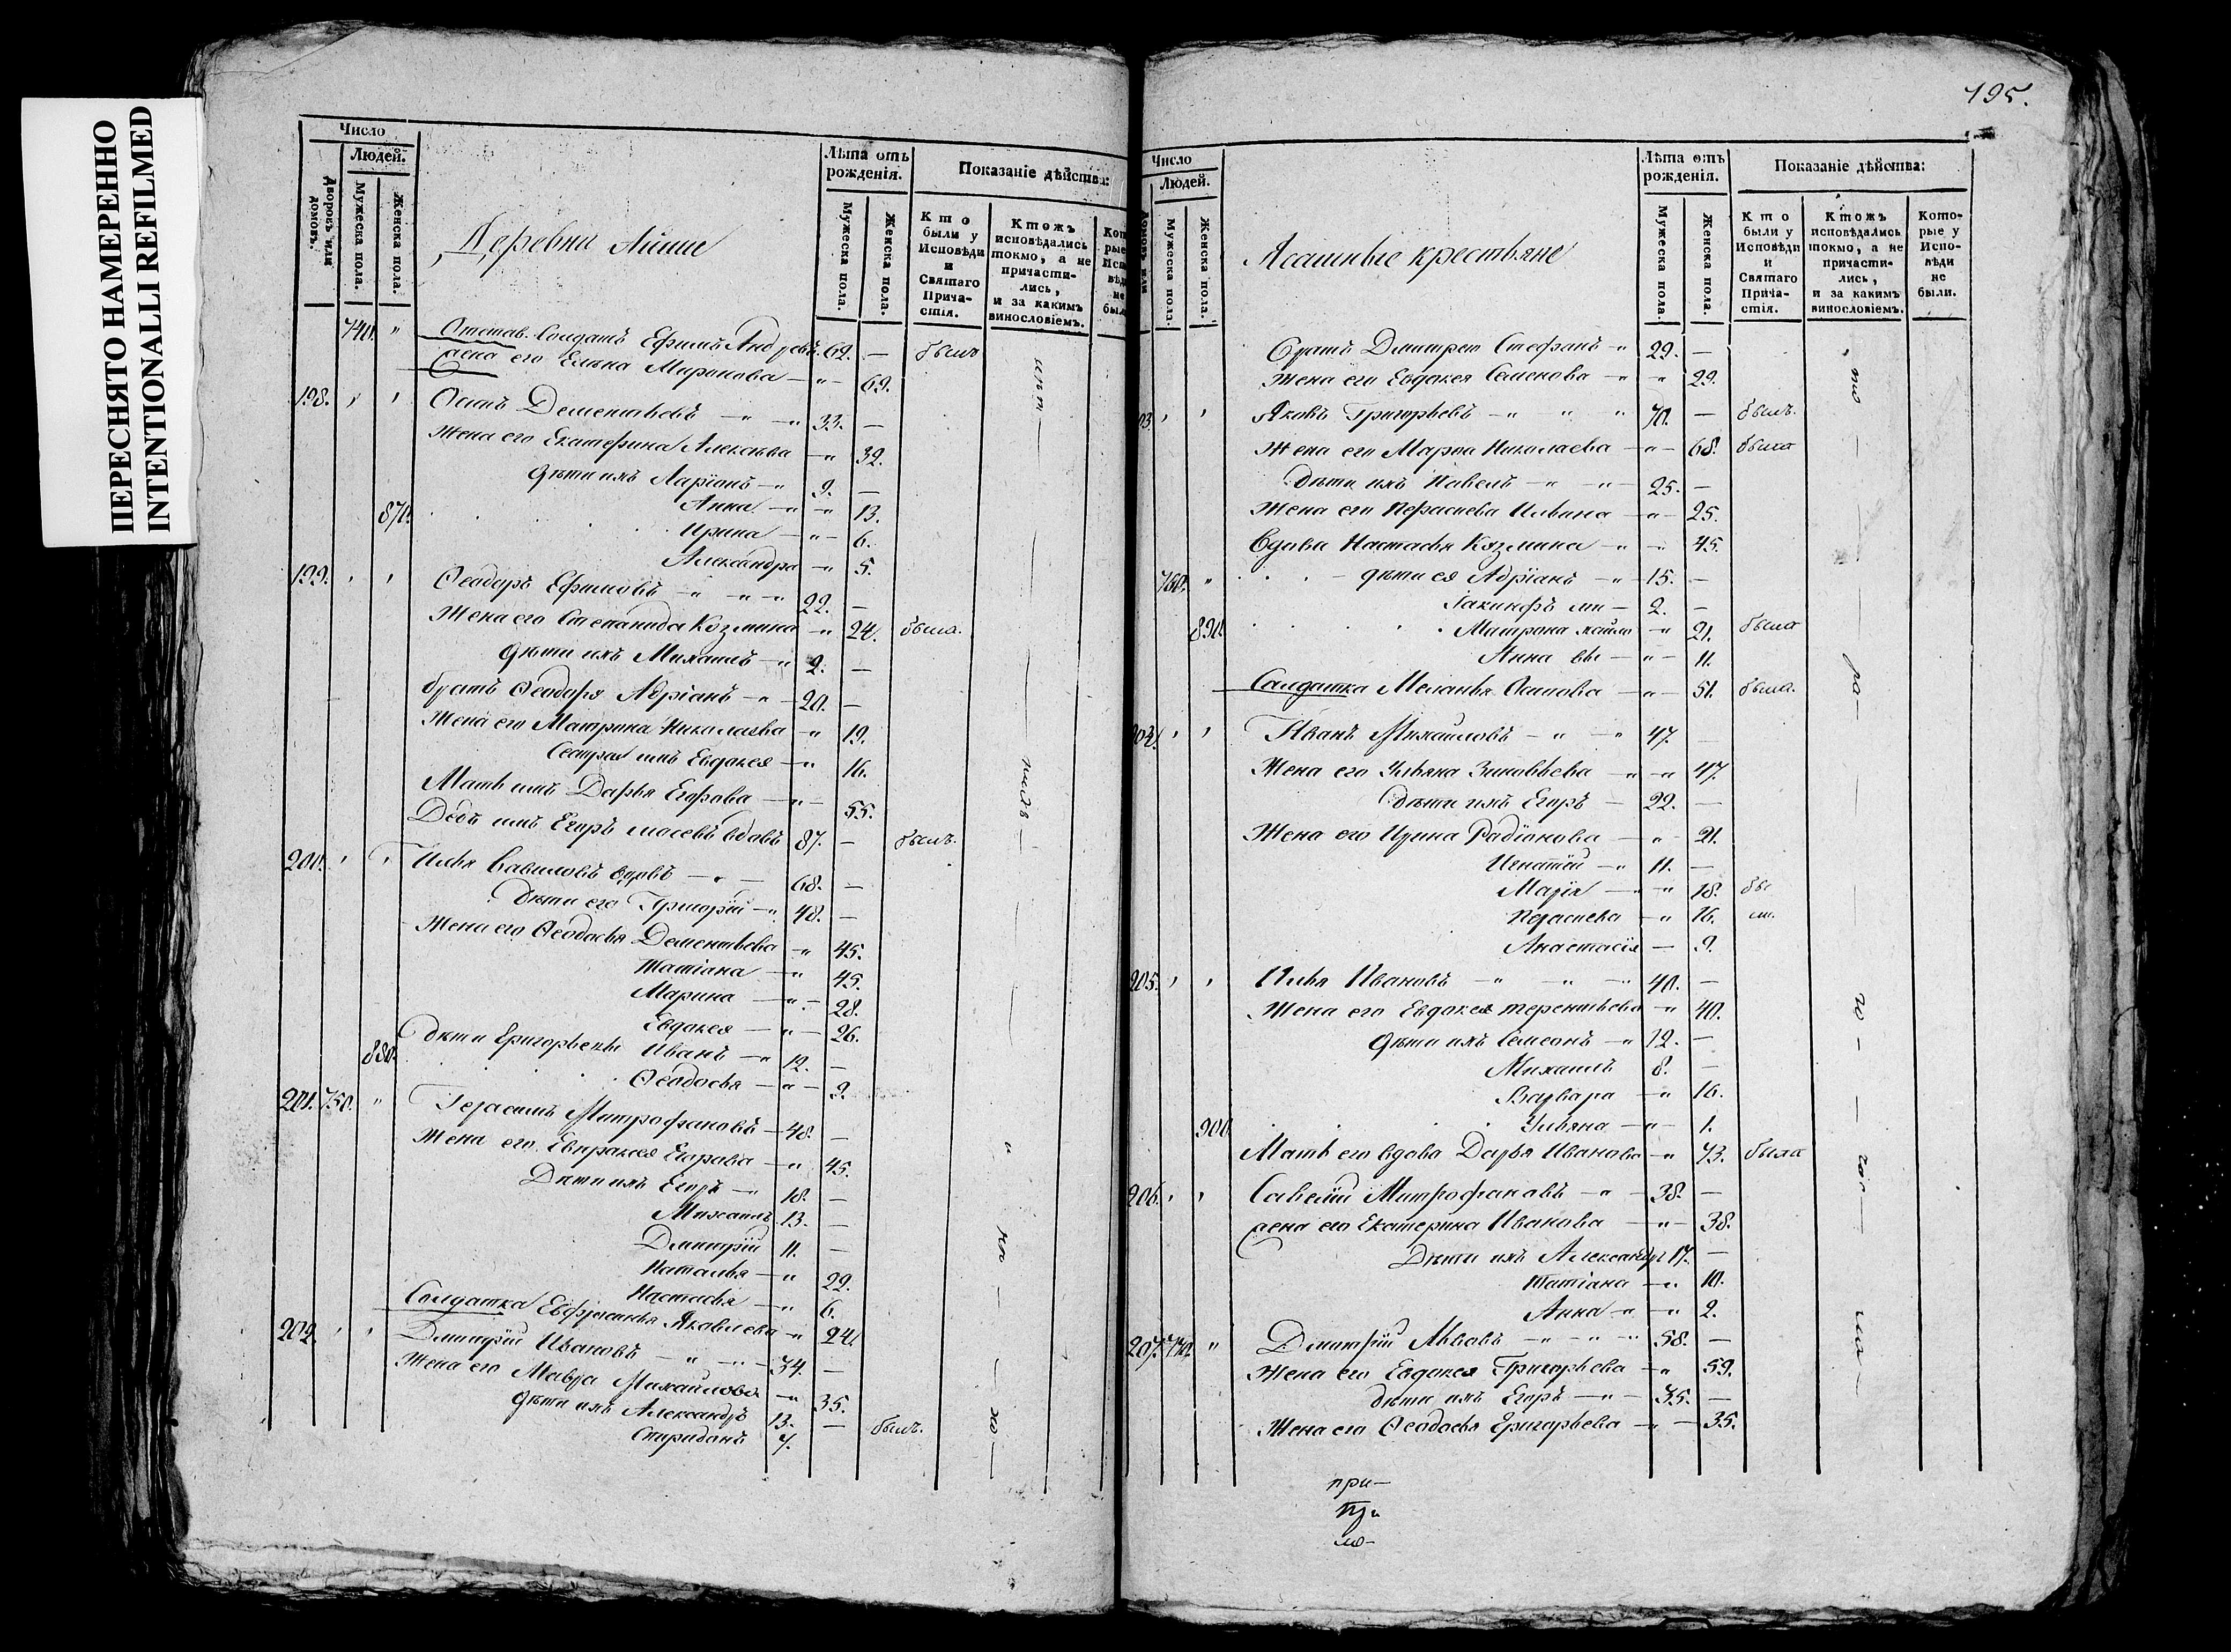 ПЕРЕСНЯТО НАМЕРЕННО
INTENTIONALLI REFILMED
Число
Людей.
Дворовъ или домовъ.
Мужеска пола.
Женска пола.
Деревни
Лѣта отъ рожденія.
Мужеска пола.
Женска пола.
Показаніе дѣйства:
Кто были у Исповѣди и Святаго Причастія.
Ктожъ исповѣдались токмо, а не причастились, и за какимъ винословіемъ.
740. " Отстав. Солдатъ Ефимъ Андреевъ 62. — былъ
жена его Елена Миронова — " — 69.
198. Осипъ Дементьевъ — " — " 33. —
Жена его Екатерина Алексѣева — " 32.
дѣти ихъ Ларіонъ — " 9. —
870. Анна — " — " 13.
Ирина — " — 6.
Александра — " 5.
199. Ѳеодоръ Ефимовъ — " — " — " 22. —
Жена его Степанида Козмина — " 24. была.
дѣти ихъ Михаилъ — " 2. —
братъ Ѳеодоря Адріанъ — " — 20. —
Жена его Матрина Николаева — " 19.
Сестра имъ Евдокея — " 16.
Мать имъ Дарья Егорова — " — 55.
Дѣдъ имъ Егоръ вдовъ 87. — былъ.
200. Илья Вавиловъ вдовъ — " — 68. —
Дѣти его Григорій — " 48. —
Жена его Ѳеодосья Дементьева — " 45.
Татіана — " 45.
Марина — " — 28.
Евдокея — " — 26.
880. Дѣти Григорьевы Иванъ — " 12. —
Ѳеодосья — " — 9.
201. 750. " Герасимъ Митрофановъ — 48. —
Жена его Евпраксея Егорова — " 45.
Дѣти ихъ Егоръ — " 18. —
Михаилъ 13. —
Дмитрій 11. —
Наталья — " 22.
Настасья — " 6.
Солдатка Яковлева — " 24.
202. Дмитрій Ивановъ — " — " — 34. —
Жена его Мавра Михайлова — " 35.
дѣти ихъ Александръ 13. —
Спиридонъ 7. былъ.
195.
Число
Людей.
Мужеска пола.
Женска пола.
Ясашные крестьяне
Лѣта отъ рожденія.
Мужеска пола.
Женска пола.
Показаніе дѣйства:
Кто были у Исповѣди и Святаго Причастія.
Ктожъ исповѣдались токмо, а не причастились, и за какимъ винословіемъ.
Которые у Исповѣди не были.
братъ Дмитрея Стефанъ — " 29. —
Жена его Евдокея Семенова — " — " 29.
Яковъ Григорьевъ — " " " 70. — былъ.
Жена его Марѳа Николаева — " — 68. была
Дѣти ихъ Павелъ — " — " — 25. —
Жена его Параскева Ильина — " — 25.
Вдова Настасья Козмина — " — " 45.
760. " дѣти ея Адріанъ — " — 15. —
Іакинфъ — 2. —
890. Матрона — " 21. была
Анна — " — 11.
Солдатка Меланья Осипова — " — 51. была.
204. Иванъ Михайловъ — " — " 47. —
Жена его Ульяна Зиновьева — " — " 47.
Дѣти ихъ Егоръ — 22. —
Жена его Ирина Радіонова — " — 21.
Игнатій — " 11. —
Марія — " — " 18.
Параскева — " 16.
Анастасія — 9.
205. Илья Ивановъ — " — " — " 40. —
Жена его Евдокея Терентьева — " 40.
дѣти ихъ Симеонъ — " 12. —
Михаилъ 8. —
Варвара — " 16.
900 Ульяна — " — 1.
Мать его вдова Дарья Иванова — " 73. была
206. Савелій Митрофановъ — " — 38. —
жена его Екатерина Иванова — " — 38.
Дѣти ихъ Александръ 17. —
Татіана — " 10.
Анна — " — " 2.
207. 770. " Дмитрій Львовъ — " — " — " 58. —
Жена его Евдокея Григорьева — " 59.
дѣти ихъ Егоръ — " — 35. —
Жена его Ѳеодосья Григорьева — " — 35.
при—